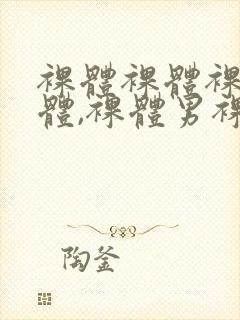 裸體裸體裸
體,裸體男裸
陶釜